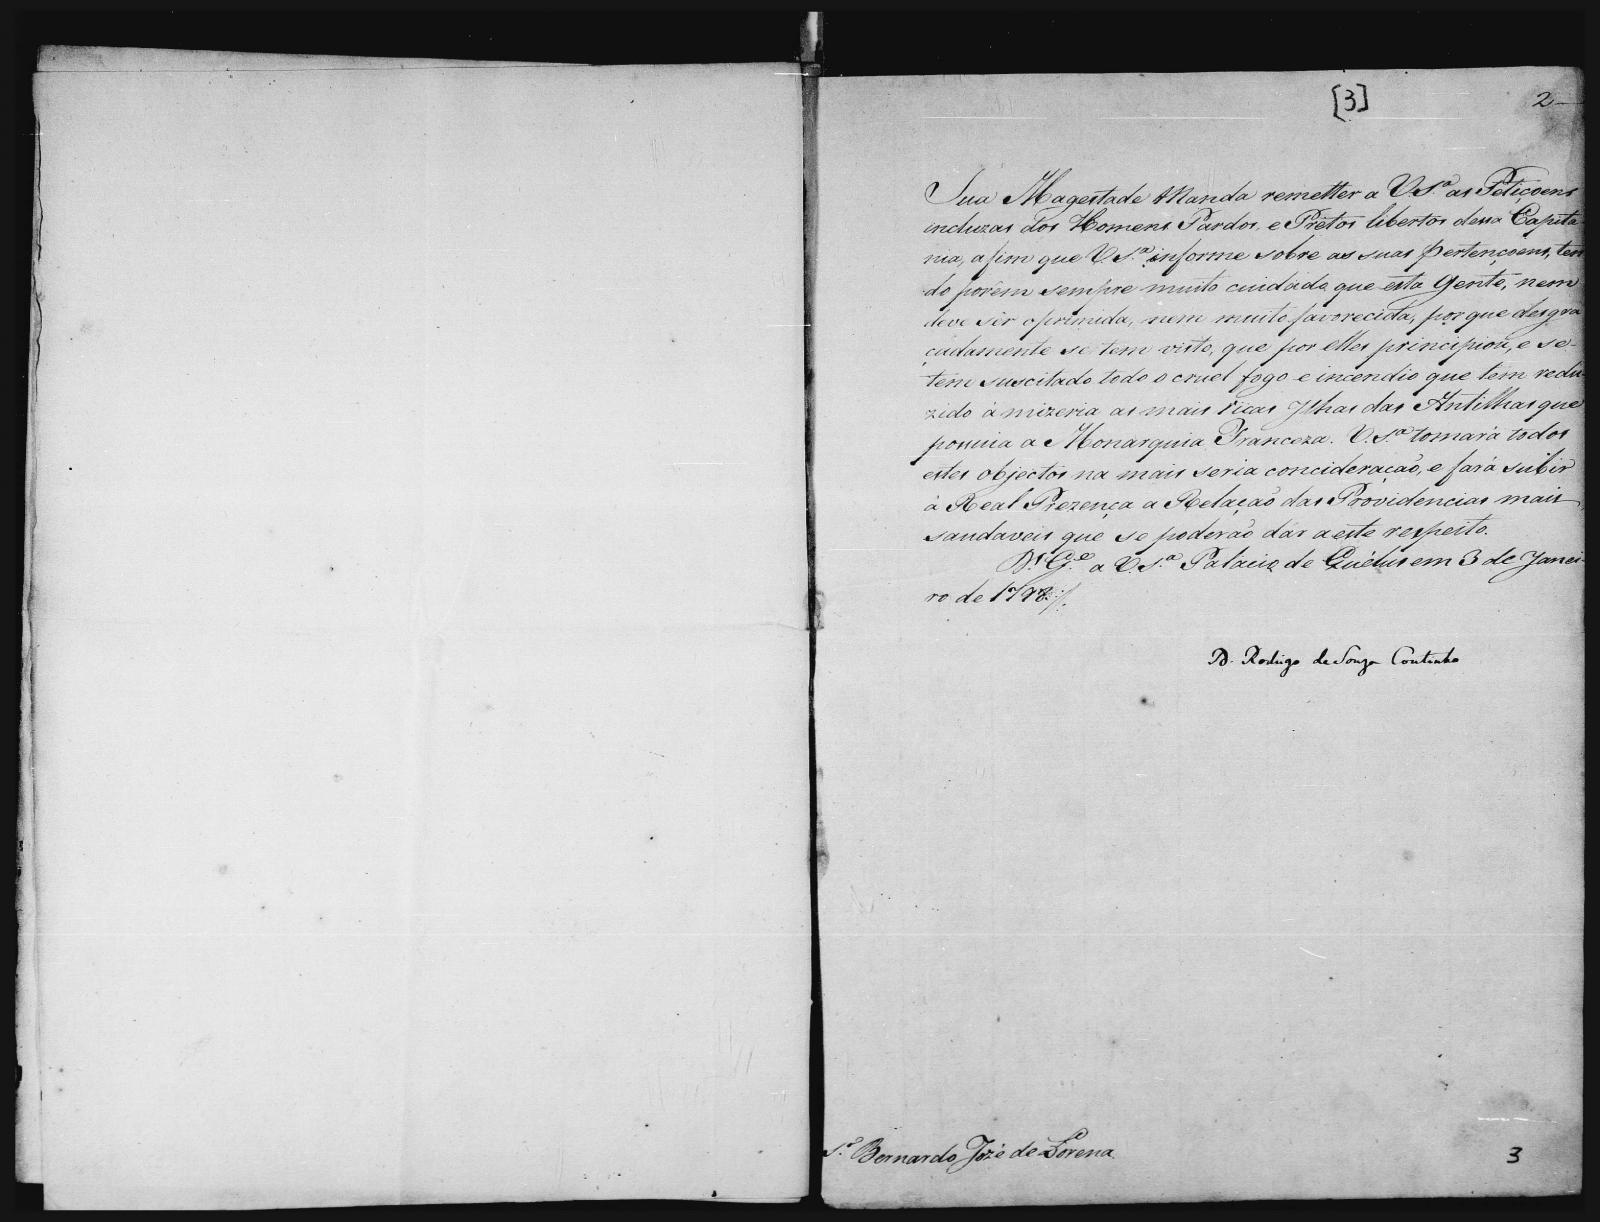 [3]
2
Sua Magestade Manda remetter a V. S.ª as Petiçoens
incluzas dos Homens Pardos, e Prétos libertos dessa Capita-
nia, afim que V. S.ª informe sobre as suas pertençoens, ten
do porèm sempre muito cuidado que esta Gente, nem
deve sèr oprimida, nem muito favorecida, porque desgra
çadamente se tem visto, que por elles principiou, e se-
tem suscitado todo o cruel fogo e incendio que tem redu-
zido á mizeria as mais ricas Ilhas das Antilhas que
possuia a Monarquia Franceza. V. S.ª tomará todos
estes objectos na mais seria concideração, e fará subir
á Real Prezença a Relação das Providencias mais
saudaveis que se poderão dár a este respeito.
D.s G.e a V. S.ª Palacio de Quéluz em 3 de Janei-
ro de
D. Rodrigo de Souza Coutinho
S.r Bernardo Jozé de Lorena
3